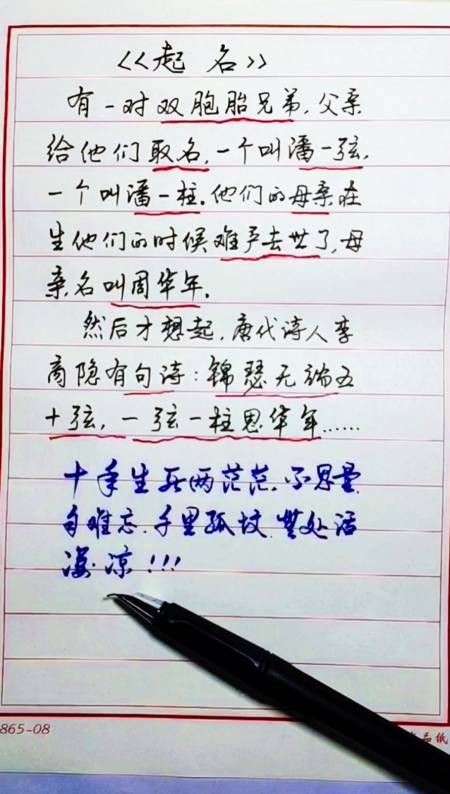 《起名》
有一对双胞胎兄弟，父亲
给他们取名，一个叫潘一弦，
一个叫潘一柱。他们的母亲在
生他们的时候难产去世了，母
亲名叫周华年。
然后才想起，唐代诗人李
商隐有句诗：锦瑟无端五
十弦，一弦一柱思华年……
十年生死两茫茫，不思量
自难忘，千里孤坟，無处话
凄凉！！！
865-08
品纸